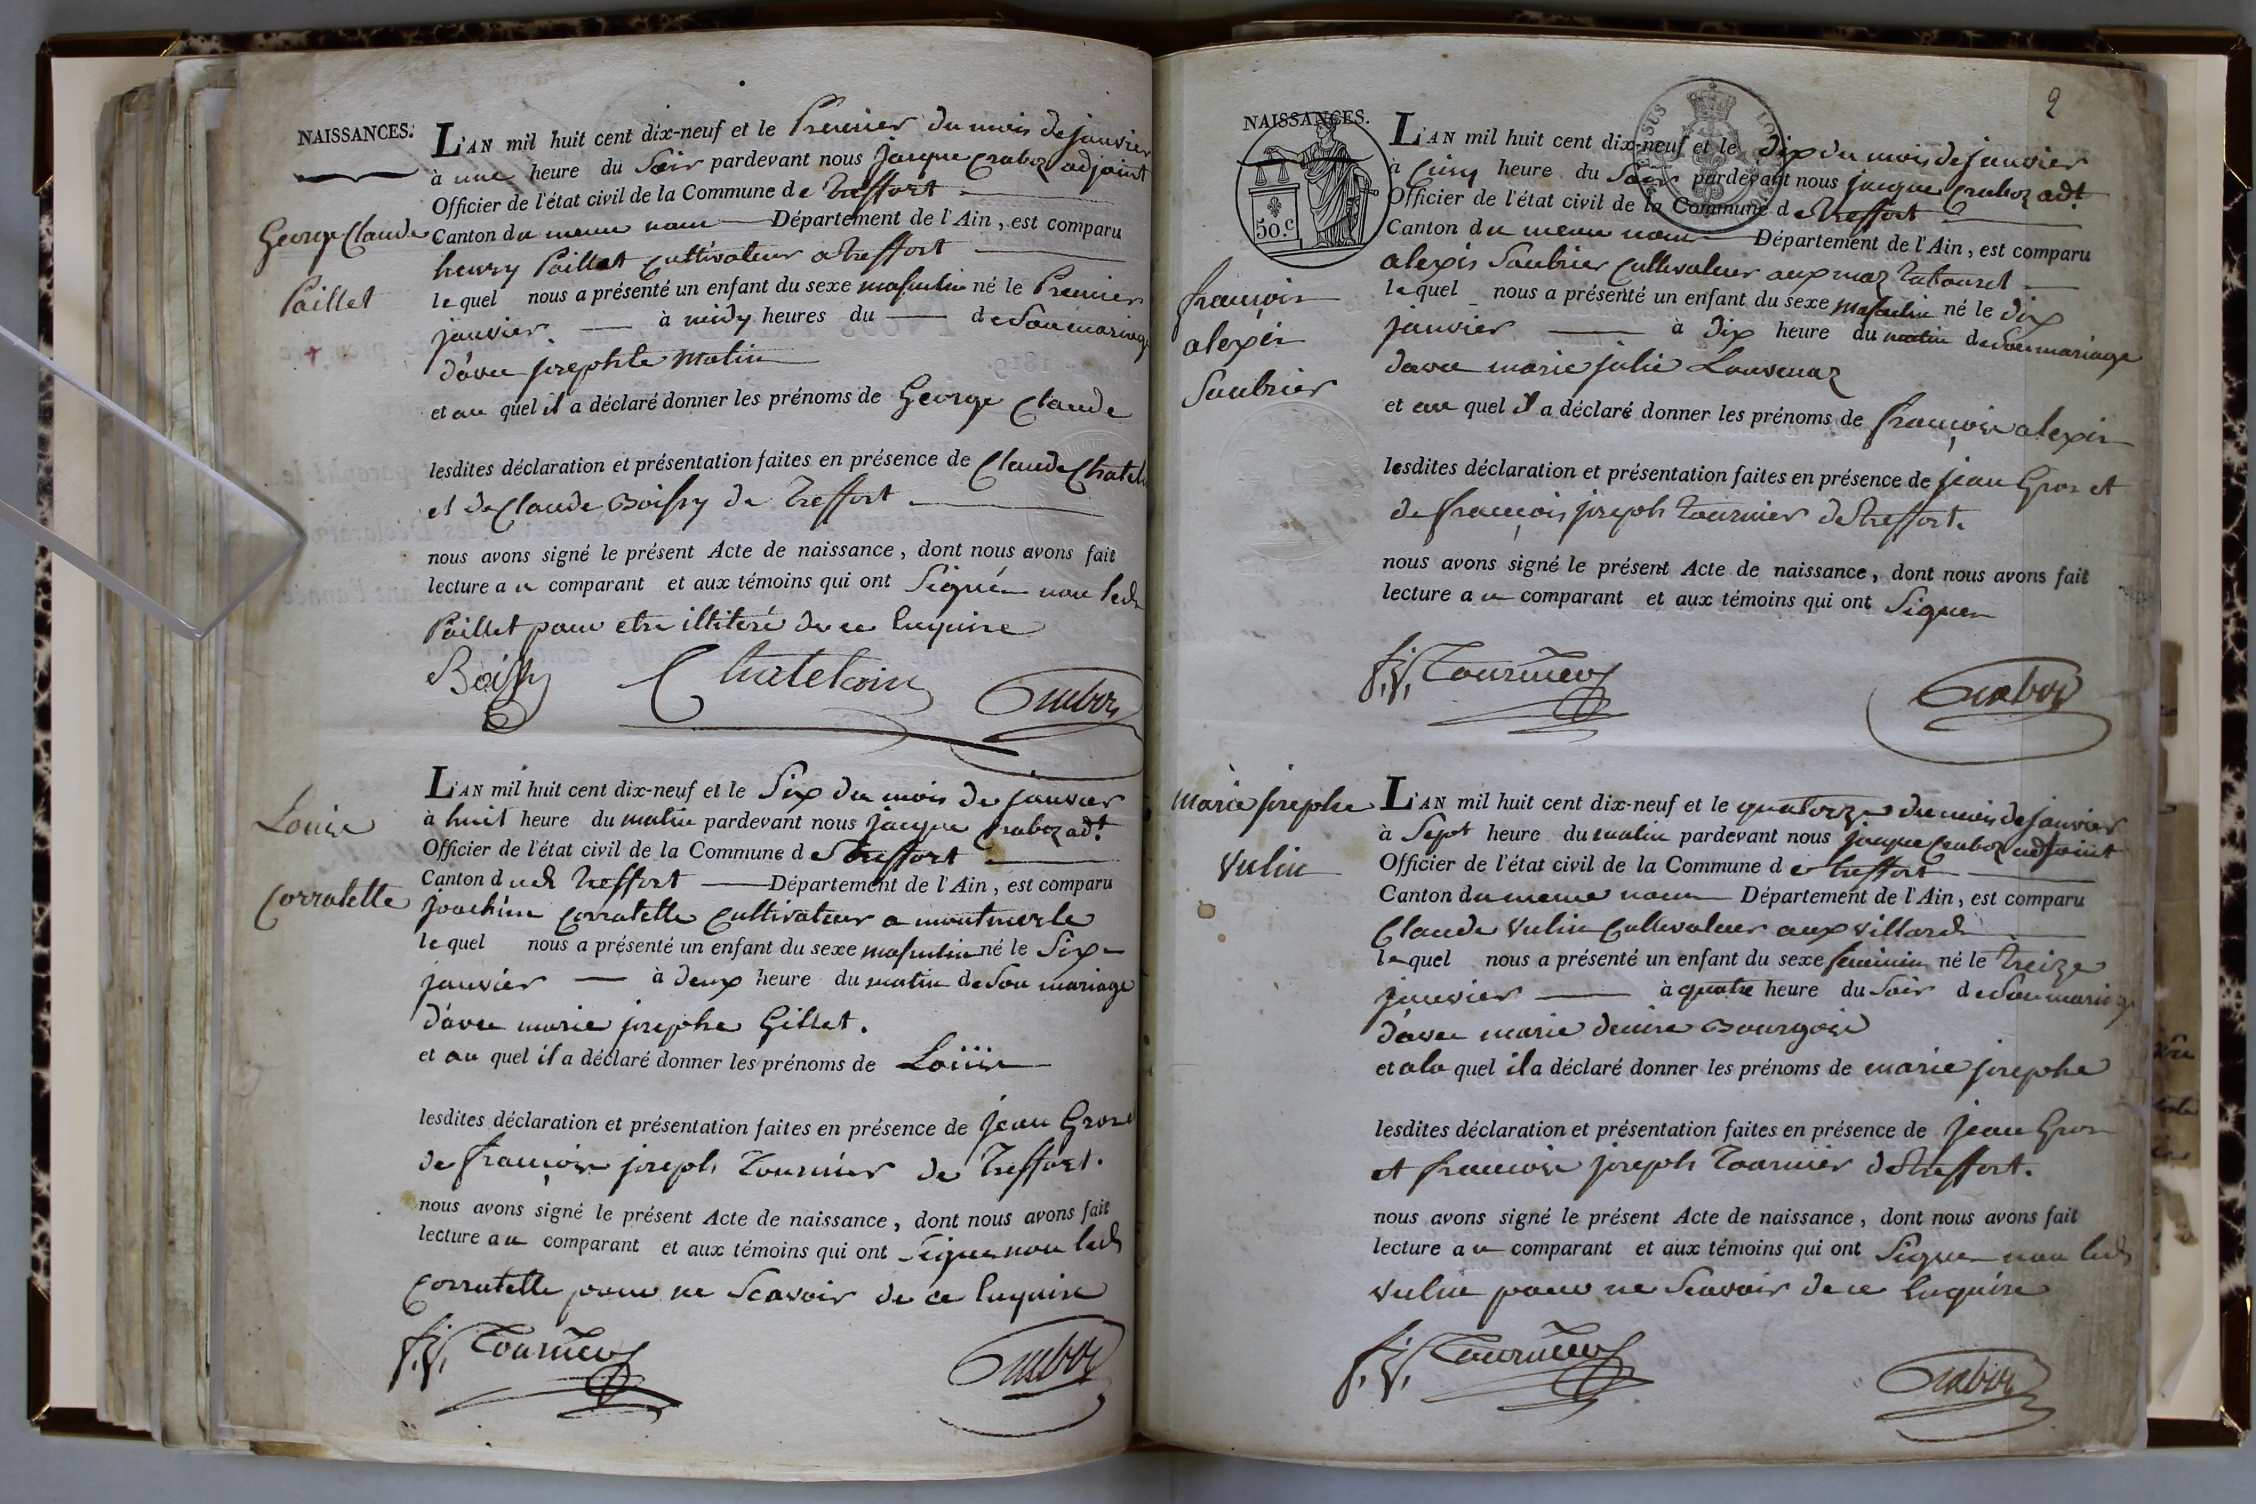 NAISSANCES.
George Claude
Paillet
L'AN mil huit cent dix-neuf et le Premier du mois de janvier
à une heure du Soir pardevant nous jacque Craboz adjoint
Officier de l'état civil de la Commune de Treffort
Canton du meme nom Département de l'Ain, est comparu
henry Paillet Cultivateur a treffort
lequel nous a présenté un enfant du sexe masculin né le Premier
janvier à midy heures du de Son mariage
d'avec josephte Matin
et au quel il a déclaré donner les prénoms de George Claude
lesdites déclaration et présentation faites en présence de Claude Chatel
et de Claude Boissy de Treffort
nous avons signé le présent Acte de naissance, dont nous avons fait
lecture au comparant et aux témoins qui ont Signé non led
Paillet pour etre illiteré de ce Enquire
Boissy Chatelain Craboz
Louise
Corratelle
L'AN mil huit cent dix-neuf et le Six du mois de janvier
à huit heure du matin pardevant nous jacque Craboz adt
Officier de l'état civil de la Commune de treffort
Canton dud Treffort Département de l'Ain, est comparu
joachim Corratelle Cultivateur a montmerle
lequel nous a présenté un enfant du sexe masculin né le Six
janvier à deux heure du matin de Son mariage
d'avec marie josephe Gillet.
et au quel il a déclaré donner les prénoms de Loüise
lesdites déclaration et présentation faites en présence de jean Gros et
de françois joseph Tournier de Treffort.
nous avons signé le présent Acte de naissance, dont nous avons fait
lecture au comparant et aux témoins qui ont Signé non led
Corratelle pour ne Scavoir de ce Enquire
f.j. Tournier Craboz
2
NAISSANCES.
50.c
françois
alexis
Saubrier
L'AN mil huit cent dix-neuf et le dix du mois de janvier
à Cinq heure du Soir pardevant nous jacque Craboz adt
Officier de l'état civil de la Commune de treffort
Canton du meme nom Département de l'Ain, est comparu
alexis Saubrier Cultivateur aux maz Tabouret
lequel nous a présenté un enfant du sexe masculin né le dix
janvier à dix heure du matin de Son mariage
d'avec marie julie Louvenaz
et au quel il a déclaré donner les prénoms de françois alexis
lesdites déclaration et présentation faites en présence de jean Gros et
de françois joseph Tournier de treffort.
nous avons signé le présent Acte de naissance, dont nous avons fait
lecture au comparant et aux témoins qui ont Signé
f.j. Tournier Craboz
Marie josephe
Vulin
L'AN mil huit cent dix-neuf et le quatorze du mois de janvier
à Sept heure du matin pardevant nous jacque Craboz adjoint
Officier de l'état civil de la Commune de treffort
Canton du meme nom Département de l'Ain, est comparu
Claude Vulin Cultivateur aux villards
lequel nous a présenté un enfant du sexe feminin né le Treize
janvier à quatre heure du Soir de Son mariage
d'avec marie denise Bourgois
et a la quel il a déclaré donner les prénoms de marie josephe
lesdites déclaration et présentation faites en présence de jean Gros
et françois joseph Tournier de treffort.
nous avons signé le présent Acte de naissance, dont nous avons fait
lecture au comparant et aux témoins qui ont Signé non led
Vulin pour ne Scavoir de ce Enquire
f.j. Tournier Craboz